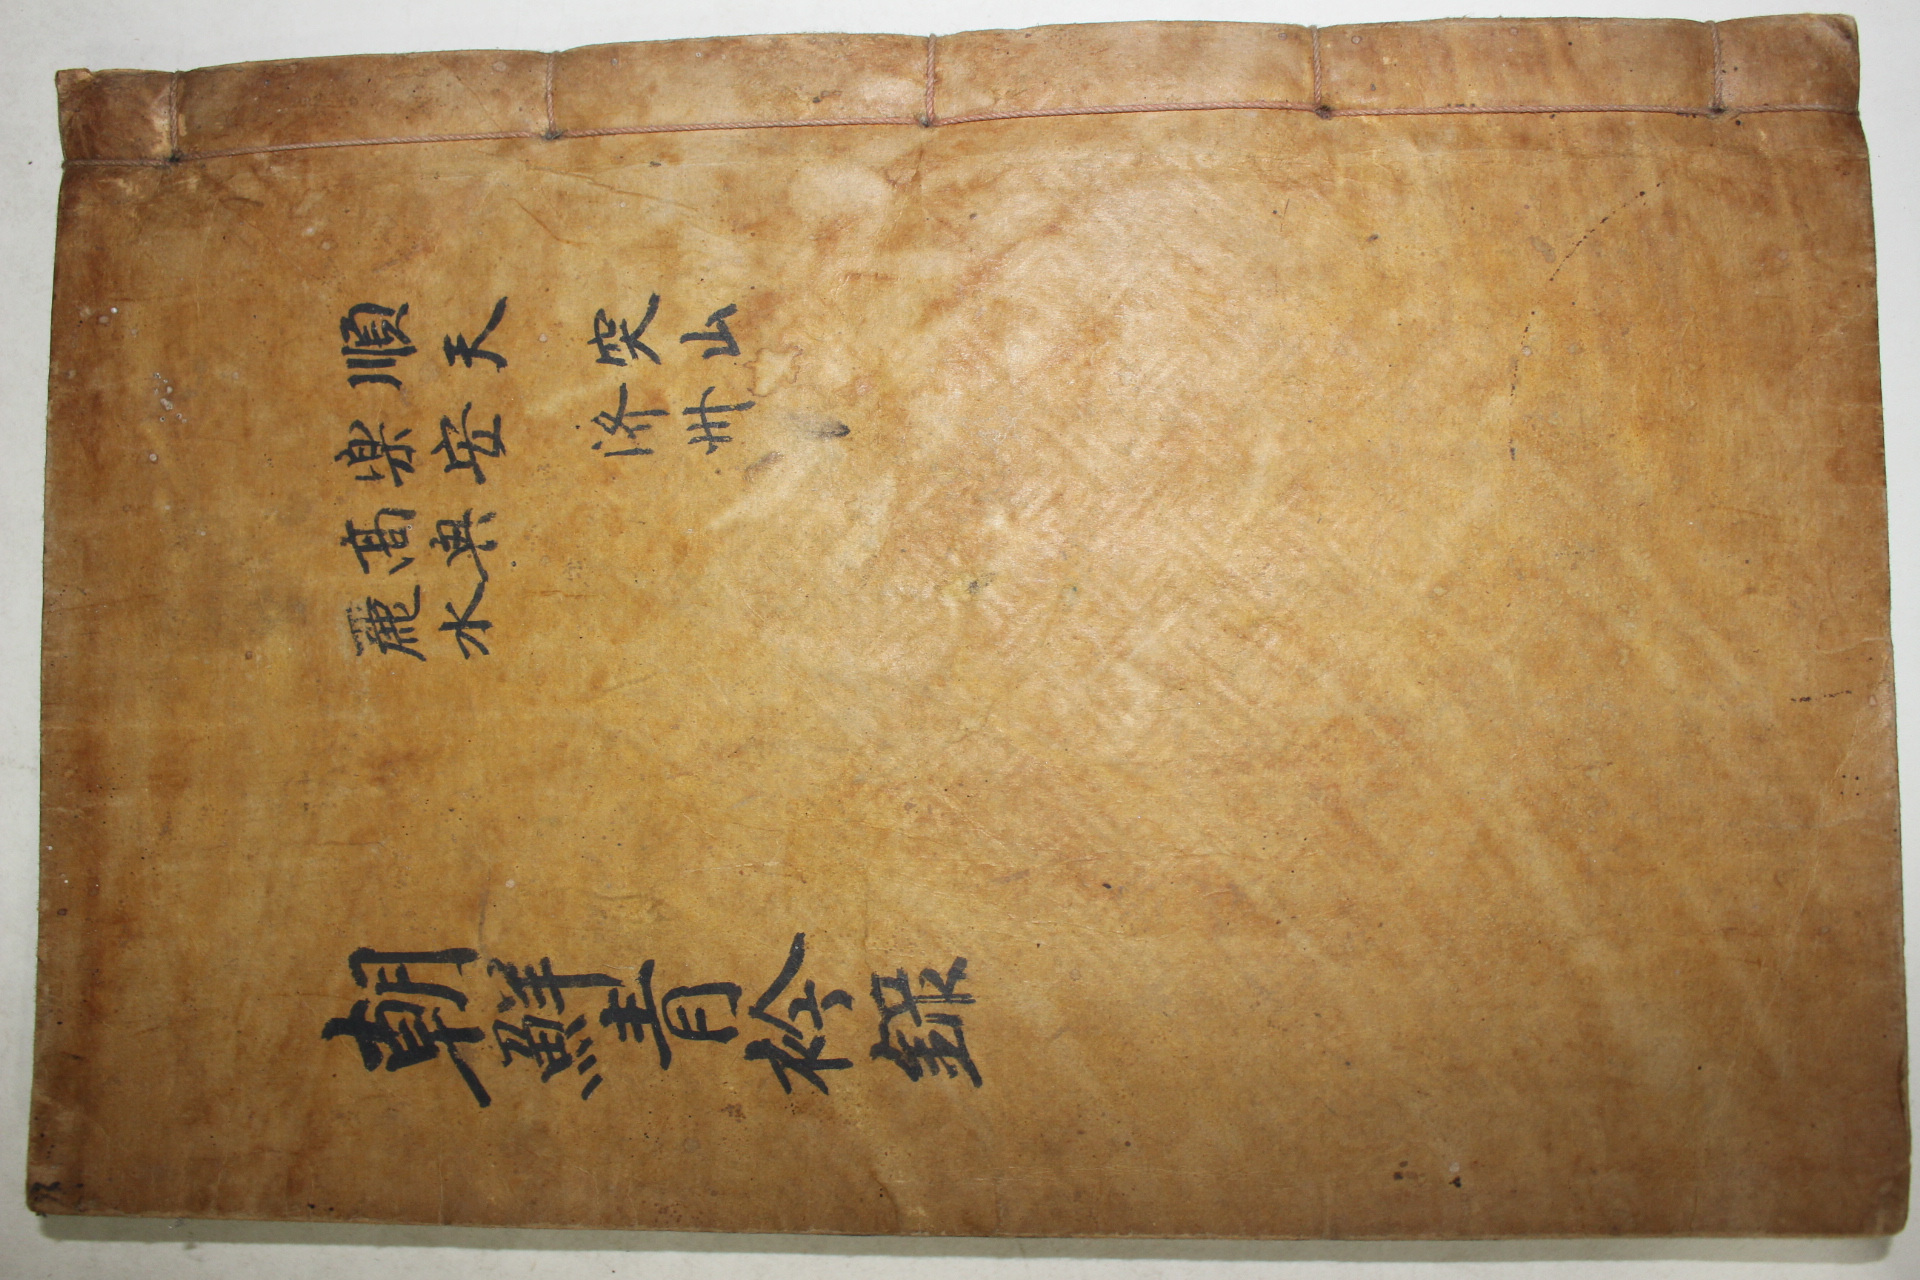 順天
楽安
髙興
麗水
突山
济州
朝鮮青衿録